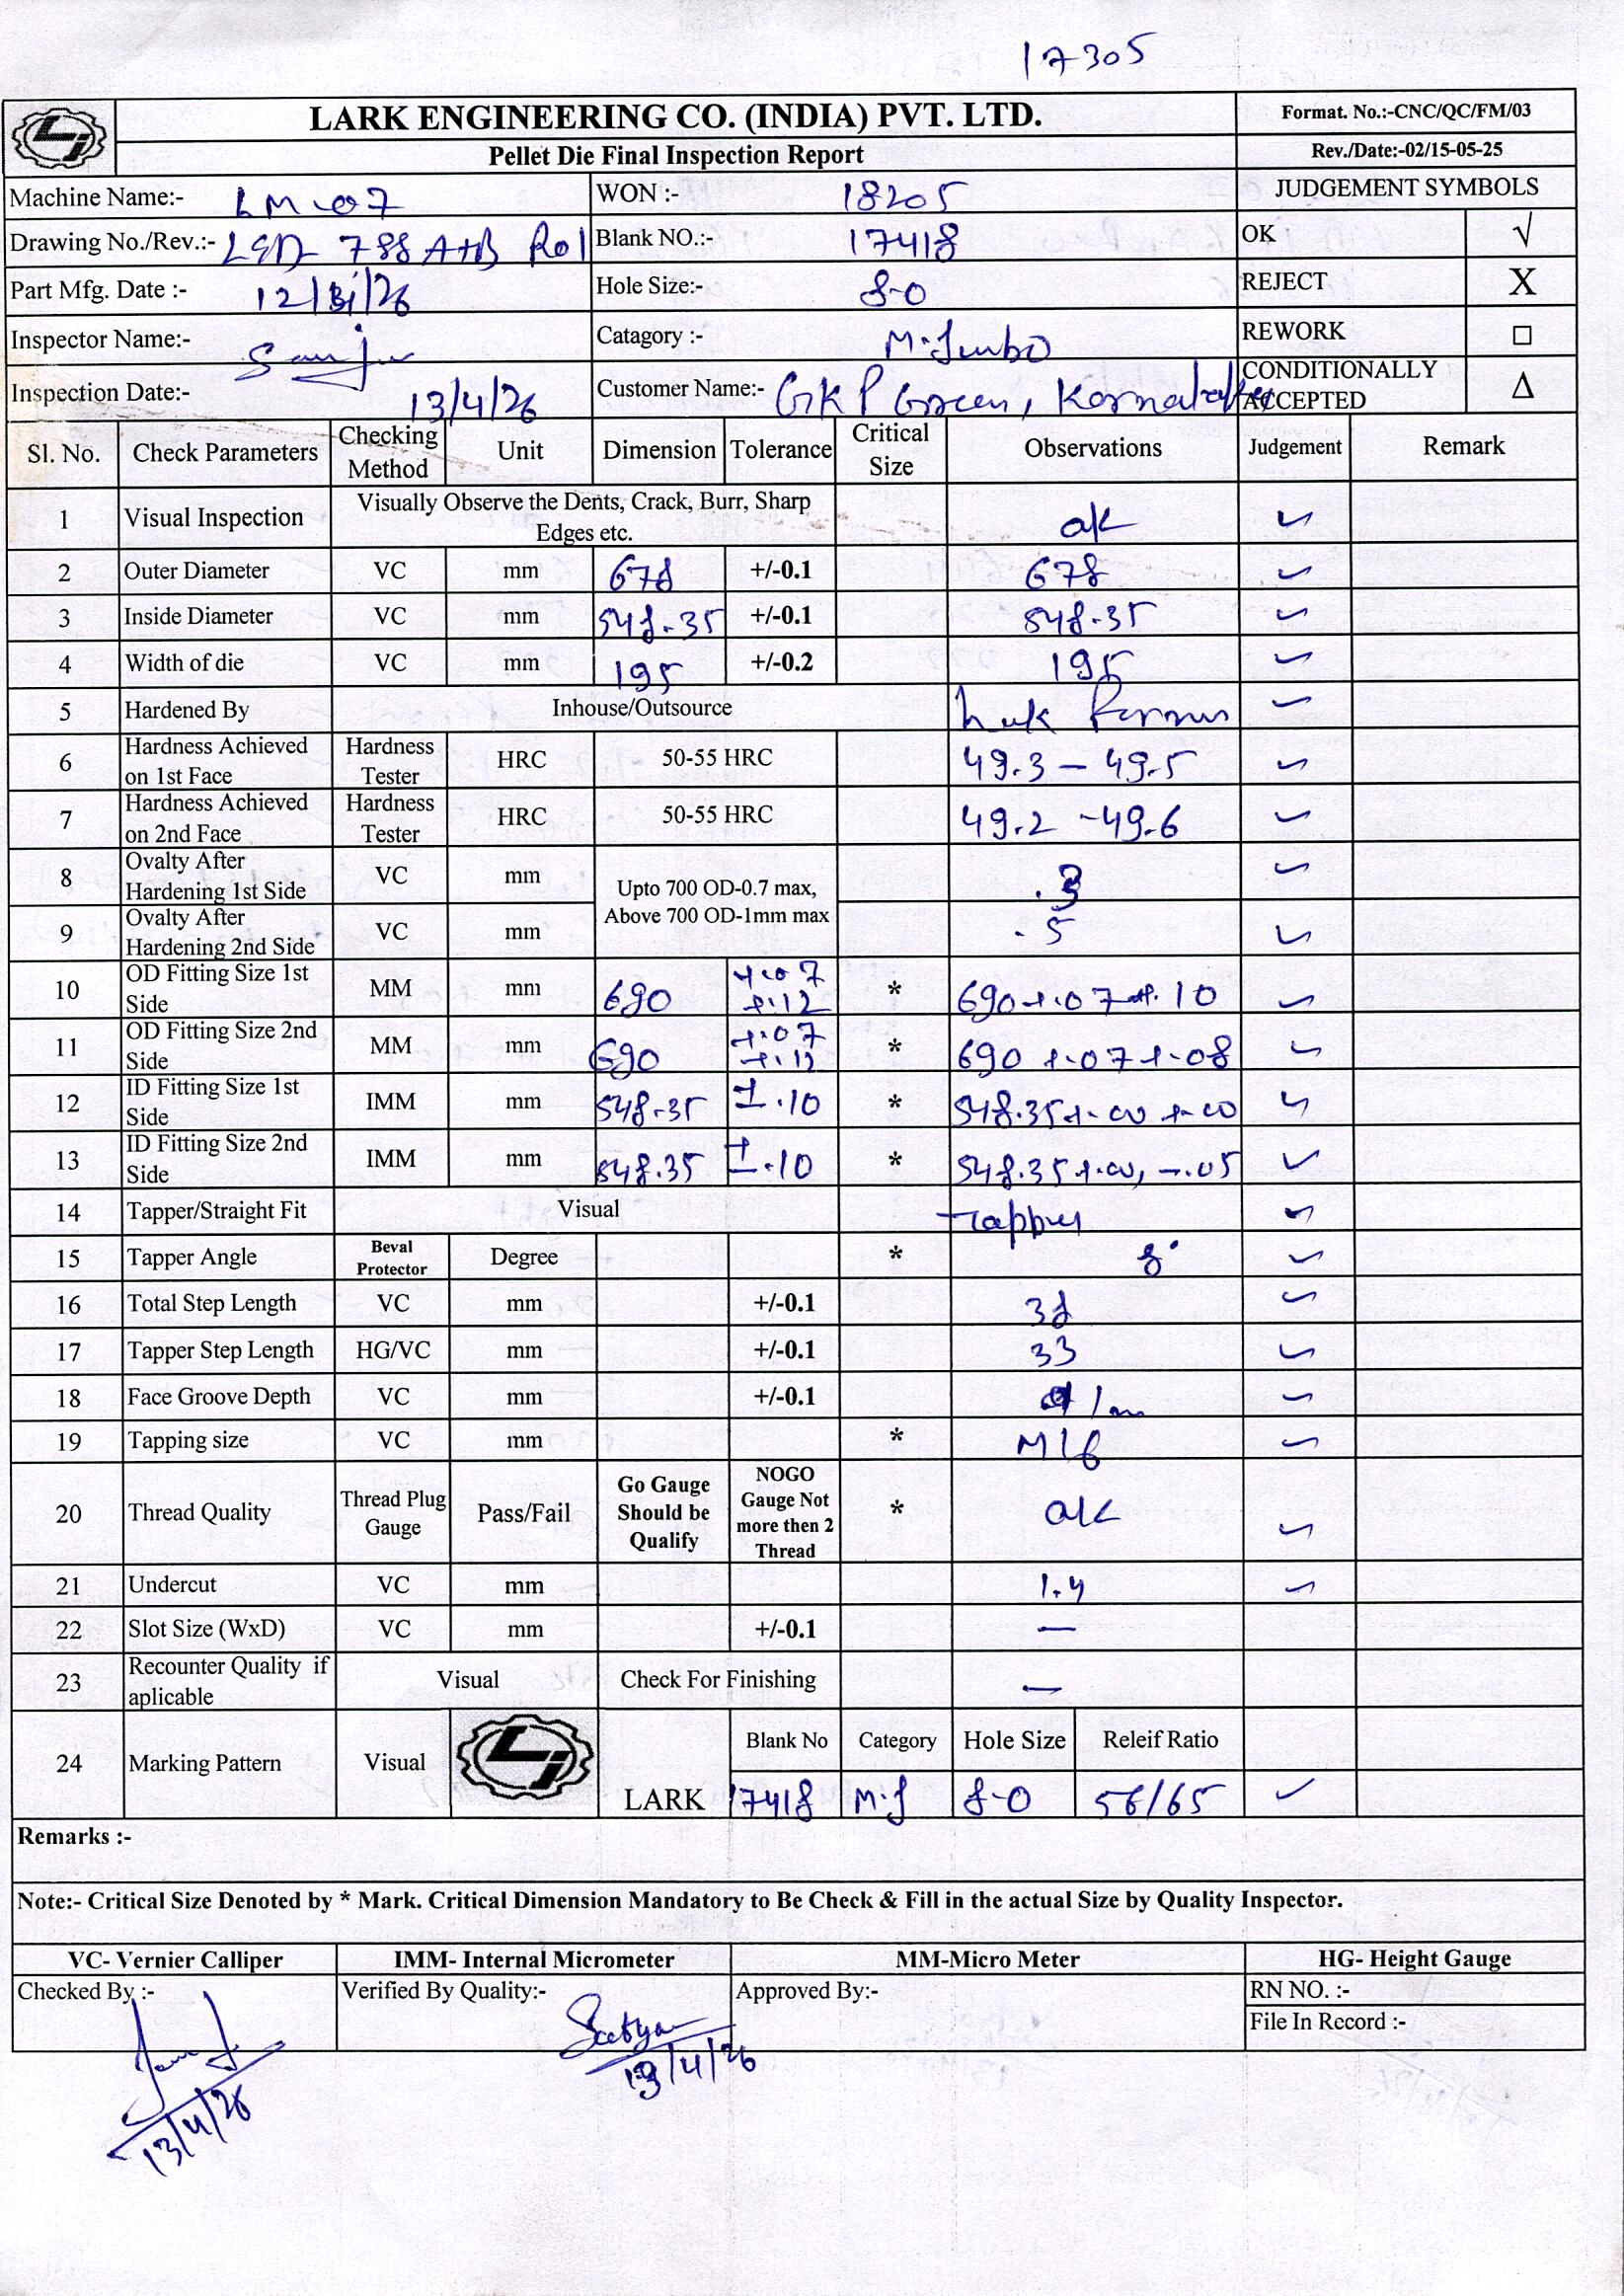 17305
LARK ENGINEERING CO. (INDIA) PVT. LTD.
Format. No.:-CNC/QC/FM/03
Pellet Die Final Inspection Report
Rev./Date:-02/15-05-25
Machine Name:- LM-07 WON :- 18205 JUDGEMENT SYMBOLS
Drawing No./Rev.:- 788 A+B R01 Blank NO.:- 17418 OK √
Part Mfg. Date :- 12/ /26 Hole Size:- 8-0 REJECT X
Inspector Name:- Sanju Catagory :- M.Jumbo REWORK □
Inspection Date:- 13/4/26 Customer Name:- GKP Green, Karnataka CONDITIONALLY ACCEPTED Δ
Sl. No. Check Parameters Checking Method Unit Dimension Tolerance Critical Size Observations Judgement Remark
1 Visual Inspection Visually Observe the Dents, Crack, Burr, Sharp Edges etc. ok ✓
2 Outer Diameter VC mm 678 +/-0.1 678 ✓
3 Inside Diameter VC mm 548.35 +/-0.1 548.35 ✓
4 Width of die VC mm 195 +/-0.2 195 ✓
5 Hardened By Inhouse/Outsource ✓
6 Hardness Achieved on 1st Face Hardness Tester HRC 50-55 HRC 49.3 - 49.5 ✓
7 Hardness Achieved on 2nd Face Hardness Tester HRC 50-55 HRC 49.2 - 49.6 ✓
8 Ovalty After Hardening 1st Side VC mm Upto 700 OD-0.7 max, Above 700 OD-1mm max .3 ✓
9 Ovalty After Hardening 2nd Side VC mm .5 ✓
10 OD Fitting Size 1st Side MM mm 690 +.07 +.12 * 690 +.07 +.10 ✓
11 OD Fitting Size 2nd Side MM mm 690 +.07 +.12 * 690 +.07 +.08 ✓
12 ID Fitting Size 1st Side IMM mm 548.35 ±.10 * 548.35 +.00 +.00 ✓
13 ID Fitting Size 2nd Side IMM mm 548.35 ±.10 * 548.35 +.00, -.05 ✓
14 Tapper/Straight Fit Visual Tapper ✓
15 Tapper Angle Beval Protector Degree * 8° ✓
16 Total Step Length VC mm +/-0.1 38 ✓
17 Tapper Step Length HG/VC mm +/-0.1 33 ✓
18 Face Groove Depth VC mm +/-0.1 ✓
19 Tapping size VC mm * M16 ✓
20 Thread Quality Thread Plug Gauge Pass/Fail Go Gauge Should be Qualify NOGO Gauge Not more then 2 Thread * ok ✓
21 Undercut VC mm 1.4 ✓
22 Slot Size (WxD) VC mm +/-0.1 —
23 Recounter Quality if aplicable Visual Check For Finishing —
24 Marking Pattern Visual LARK Blank No Category Hole Size Releif Ratio
17418 M.J 8-0 56/65 ✓
Remarks :-
Note:- Critical Size Denoted by * Mark. Critical Dimension Mandatory to Be Check & Fill in the actual Size by Quality Inspector.
VC- Vernier Calliper IMM- Internal Micrometer MM-Micro Meter HG- Height Gauge
Checked By :- Verified By Quality:- Approved By:- RN NO. :-
File In Record :-
Satyam
13/4/26
13/4/26